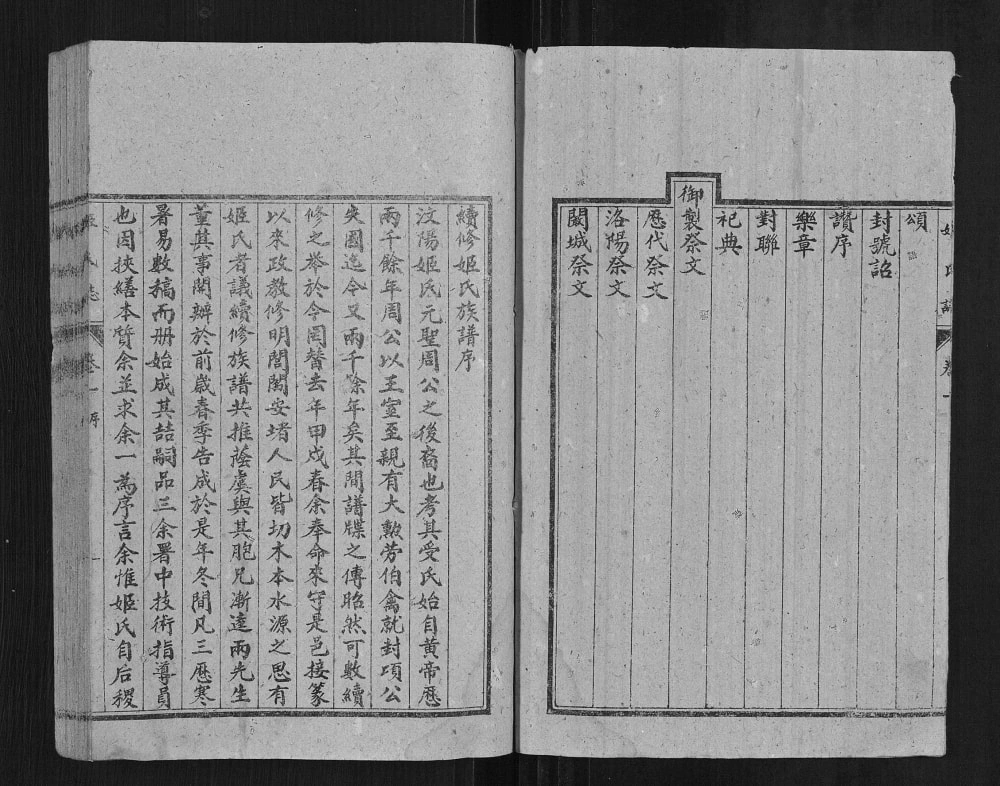 頌
封號詔
讚序
樂章
對聯
祀典
御製祭文
歷代祭文
洛陽祭文
闕城祭文
續修姬氏族譜序
汶陽姬氏元聖周公之後裔也考其受氏始自黃帝歷
兩千餘年周公以王室至親有大勲劳伯禽就封項公
失國迄今又兩千餘年矣其間譜牒之傳昭然可數續
修之举於今罔替去年甲戌春余奉命來守是邑接篆
以來政教修明閭閻安堵人民皆切木本水源之思有
姬氏者議續修族譜共推蔭虞與其胞兄漸逵兩先生
董其事開辦於前歲春季告成於是年冬間凡三歷寒
暑易數稿而册始成其喆嗣品三余署中技術指導員
也因挾繕本質余並求余一為序言余惟姬氏自后稷
卷一 序
一